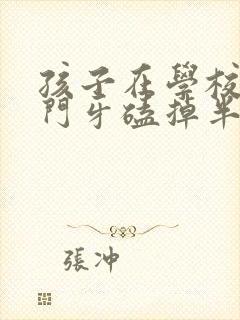 孩子在學校
門牙磕掉半
張冲